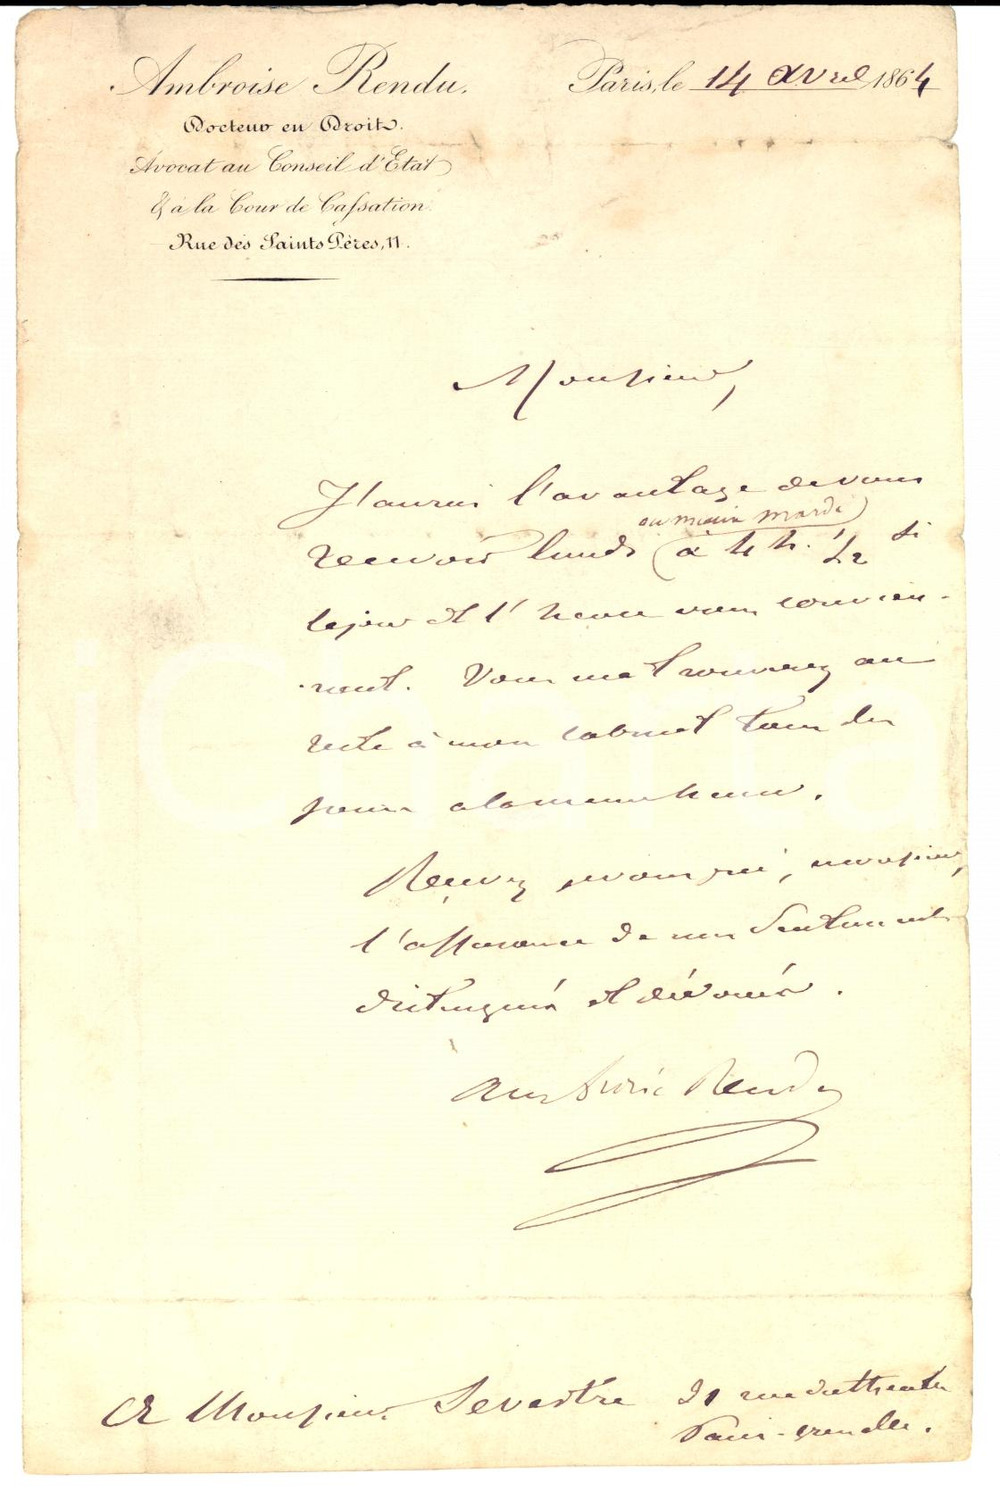 Ambroise Rendu.
Paris, le 14 avril 1864
Docteur en Droit.
Avocat au Conseil d'Etat
& à la Cour de Cassation.
Rue des Saints Pères, 11.
Monsieur,
J'aurai l'avantage de vous
ou mieux mardi
recevoir lundi (à 4 h. 1/2 si
le jour et l'heure vous convien-
nent. Vous me trouverez au
reste à mon cabinet tous les
jours à la meme heure.
Recevez je vous prie, monsieur,
l'assurance de mes sentiments
distingués et dévoués.
Ambroise Rendu
A Monsieur Sevestre 31 rue du theatre
Paris-grenelle.